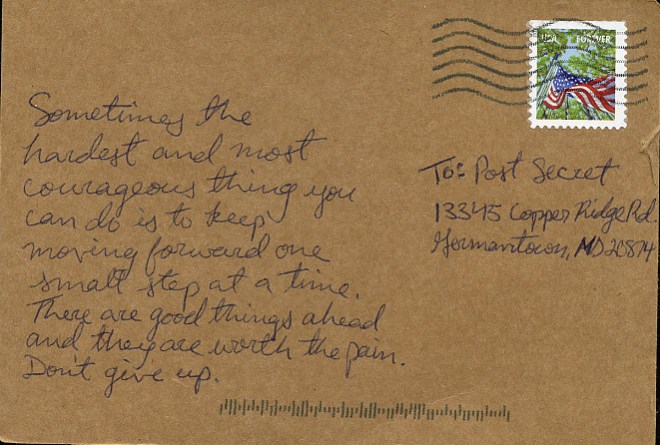 USA FOREVER
Sometimes the
hardest and most
courageous thing you
can do is to keep
moving forward one
small step at a time.
There are good things ahead
and they are worth the pain.
Don't give up.
To: Post Secret
13345 Copper Ridge Rd.
Germantown, MD 20874